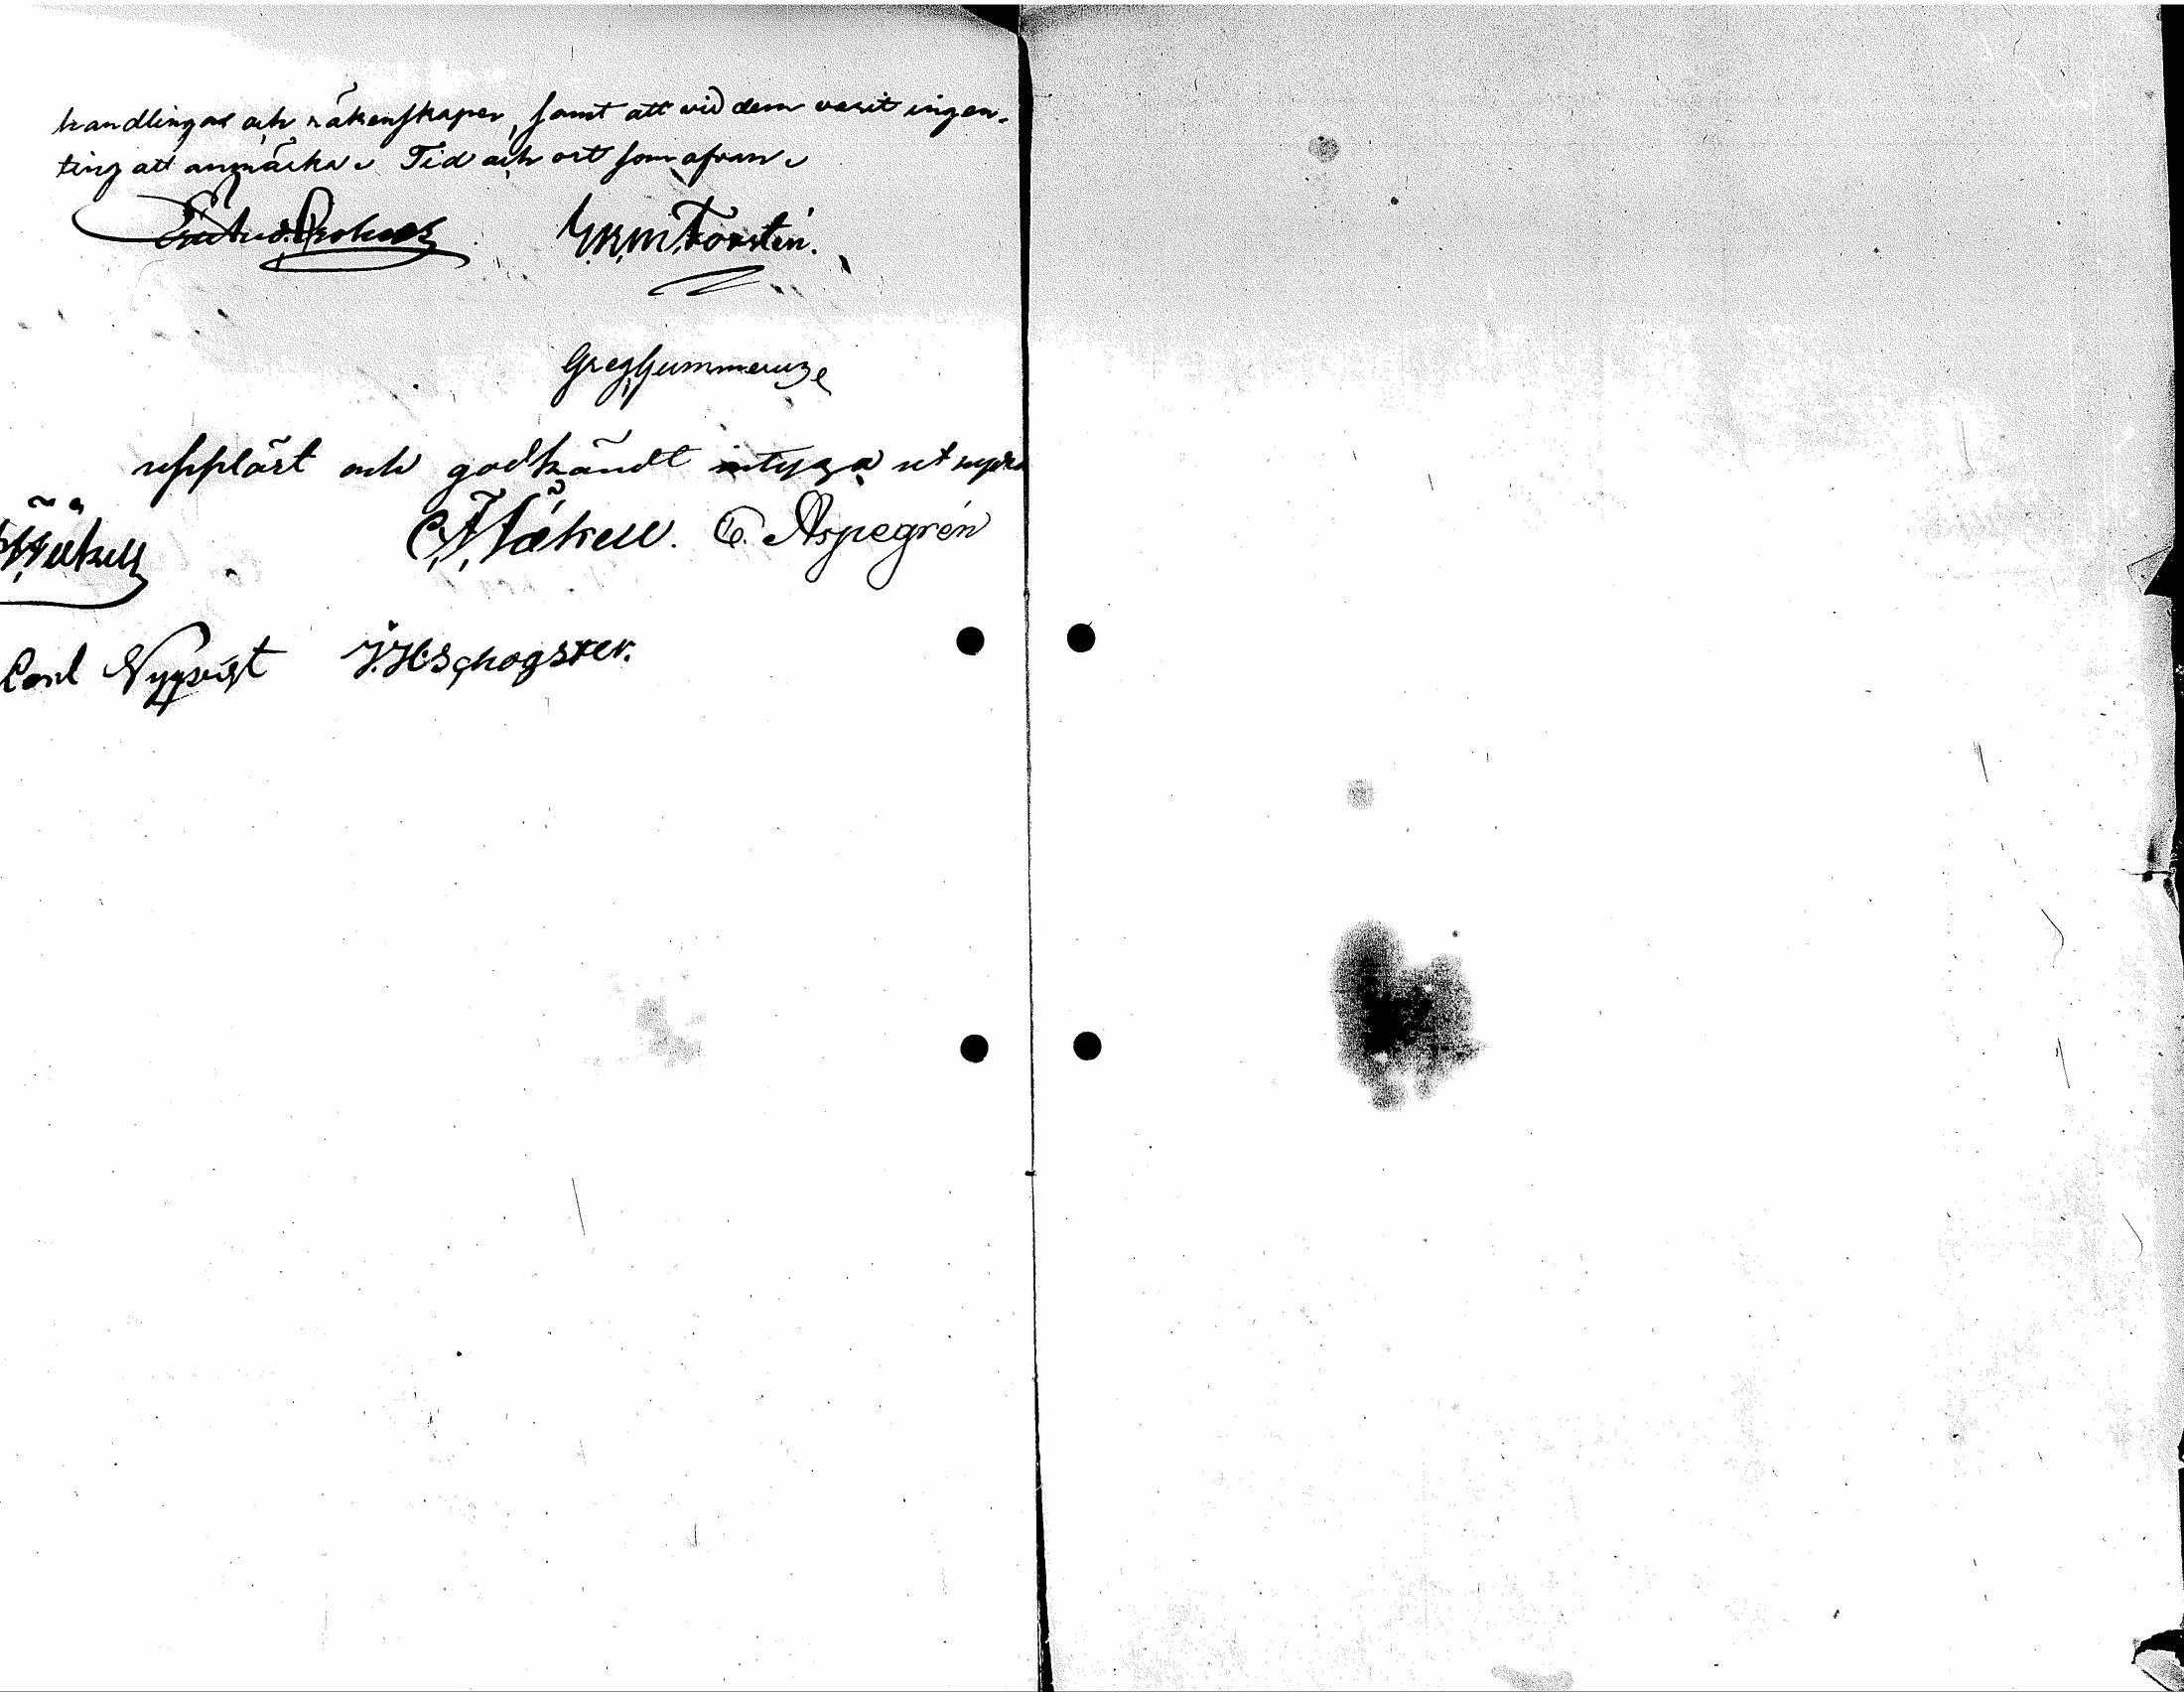 handlingar och räkenskaper, samt att vid dem varit ingen-
ting att anmärka. Tid och ort som ofvan.
Forstén.
Greg Gummerus
uppläst och godkändt intyga ut supra
C. Aspegrén
Carl Nyqvist J. H. Schogster.